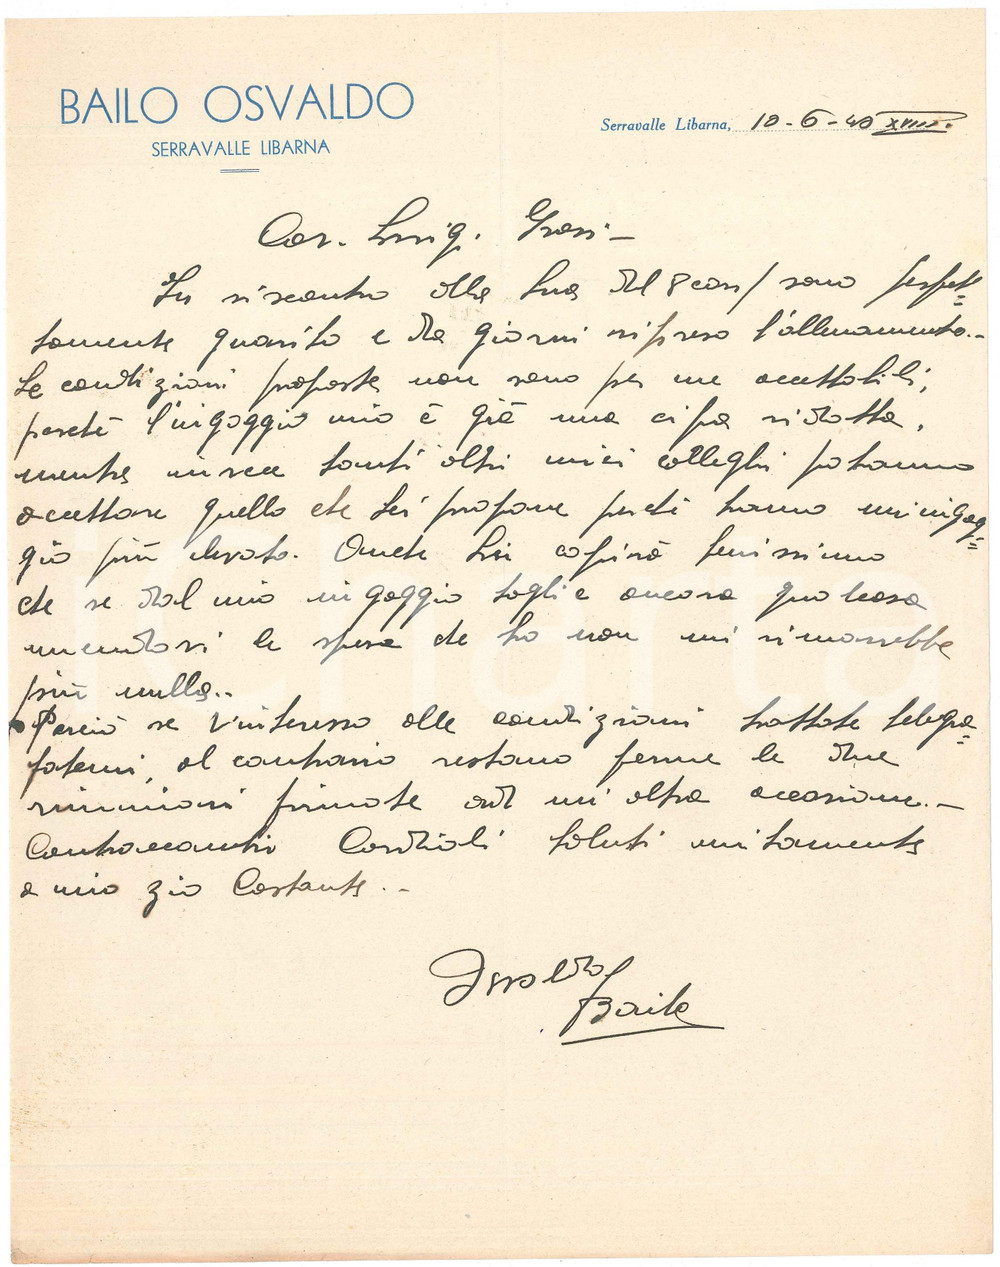 BAILO OSVALDO
SERRAVALLE LIBARNA
Serravalle Libarna, 10-6-40 XVIII.
Cav. Luigi Grassi -
In riscontro alla Sua del 8 corr/ sono perfet=
tamente guarito e da giorni ripreso l'allenamento.-
Le condizioni proposte non sono per me accettabili,
perché l'ingaggio mio è già una cifra ridotta,
mentre invece tanti altri miei colleghi potranno
accettare quello che Lei propone perché hanno un ingag=
gio più elevato. Anche Lei capirà benissimo
che se dal mio ingaggio toglie ancora qualcosa
unendosi le spese che ho non mi rimarrebbe
più nulla..
Perciò se v'interesso alle condizioni trattate telegra=
fatemi, al contrario restano ferme le due
riunioni firmate ad un'altra occasione.-
Contraccambio Cordiali Saluti unitamente
a mio zio Costante..-
Osvaldo
Bailo